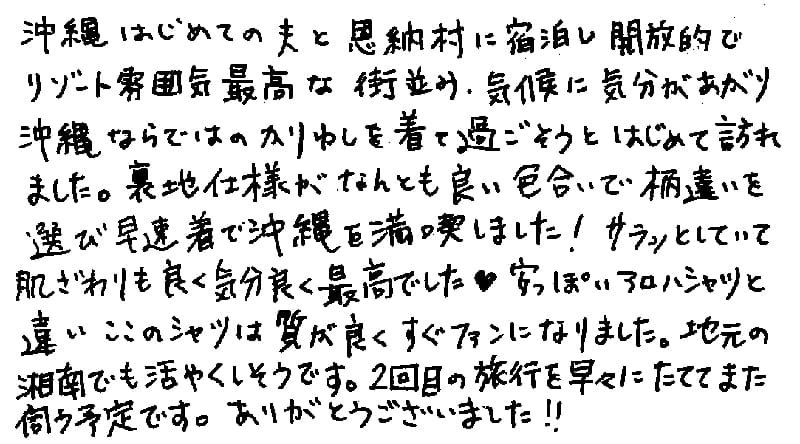 沖縄はじめての夫と恩納村に宿泊し開放的で
リゾート雰囲気最高な街並み、気候に気分があがり
沖縄ならではのかりゆしを着て過ごそうとはじめて訪れ
ました。裏地仕様がなんとも良い色合いで柄違いを
選び早速着て沖縄を満喫しました！サラッとしていて
肌ざわりも良く気分良く最高でした♥安っぽいアロハシャツと
違いここのシャツは質が良くすぐファンになりました。地元の
湘南でも活やくしそうです。2回目の旅行を早々にたててまた
伺う予定です。ありがとうございました!!